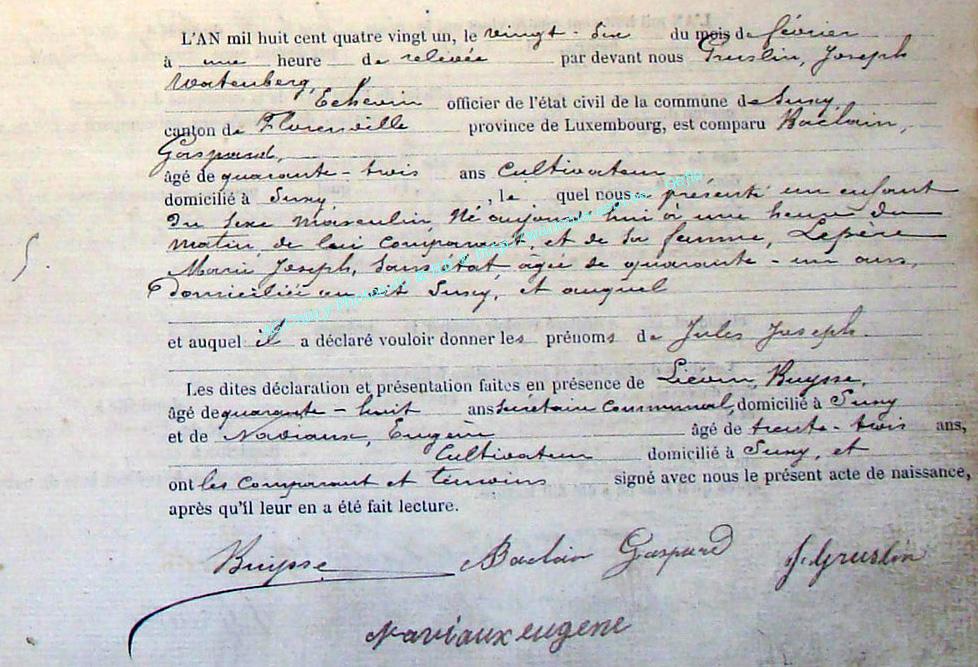 L'AN mil huit cent quatre vingt un, le vingt-six du mois de février
à une heure de relevée par devant nous Gruslin, Joseph
Watenberg,
Echevin officier de l'état civil de la commune de Suxy,
canton de Florenville province de Luxembourg, est comparu Baclain,
Gaspard,
âgé de quarante-trois ans Cultivateur
domicilié à Suxy, , le quel nous a présenté un enfant
du sexe masculin, Né aujourd'hui à une heure du
matin, de lui comparant, et de sa femme, Lepère
Marie, Joseph, sans état, âgée de quarante-un ans,
domiciliée au dit Suxy, et auquel
et auquel il a déclaré vouloir donner les prénoms de Jules Joseph
Les dites déclaration et présentation faites en présence de Liévin Buysse,
âgé de quarante-huit ans Secrétaire communal, domicilié à Suxy
et de Naviaux, Eugène âgé de trente-trois ans,
Cultivateur domicilié à Suxy, et
ont les comparant et témoins signé avec nous le présent acte de naissance,
après qu'il leur en a été fait lecture.
Buysse Baclain Gaspard J. Gruslin
Naviaux eugene